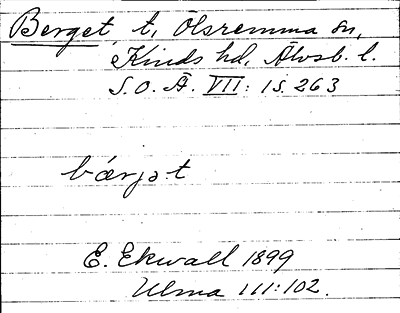 Berget, t, Ölsremma sn,
Kinds hd, Älvsb. l.
S.O.Ä. VII: 1 s. 263
bærjət
E. Ekwall 1899
Ulma 111:102.